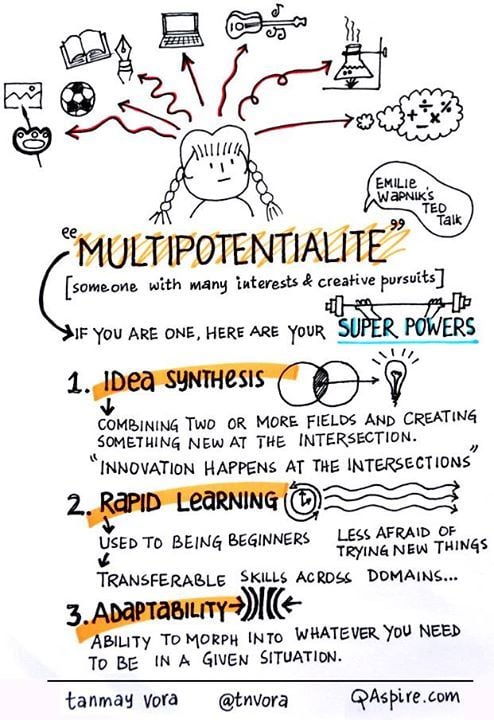 EMILIE
WAPNIK'S
TED
Talk
"MULTIPOTENTIALITE"
[someone with many interests & creative pursuits]
IF YOU ARE ONE, HERE ARE YOUR SUPER POWERS
1. IDEA SYNTHESIS
COMBINING TWO OR MORE FIELDS AND CREATING
SOMETHING NEW AT THE INTERSECTION.
"INNOVATION HAPPENS AT THE INTERSECTIONS"
2. RAPID LEARNING
USED TO BEING BEGINNERS
LESS AFRAID OF
TRYING NEW THINGS
TRANSFERABLE SKILLS ACROSS DOMAINS...
3. ADAPTABILITY
ABILITY TO MORPH INTO WHATEVER YOU NEED
TO BE IN A GIVEN SITUATION.
tanmay vora @tnvora QAspire.com